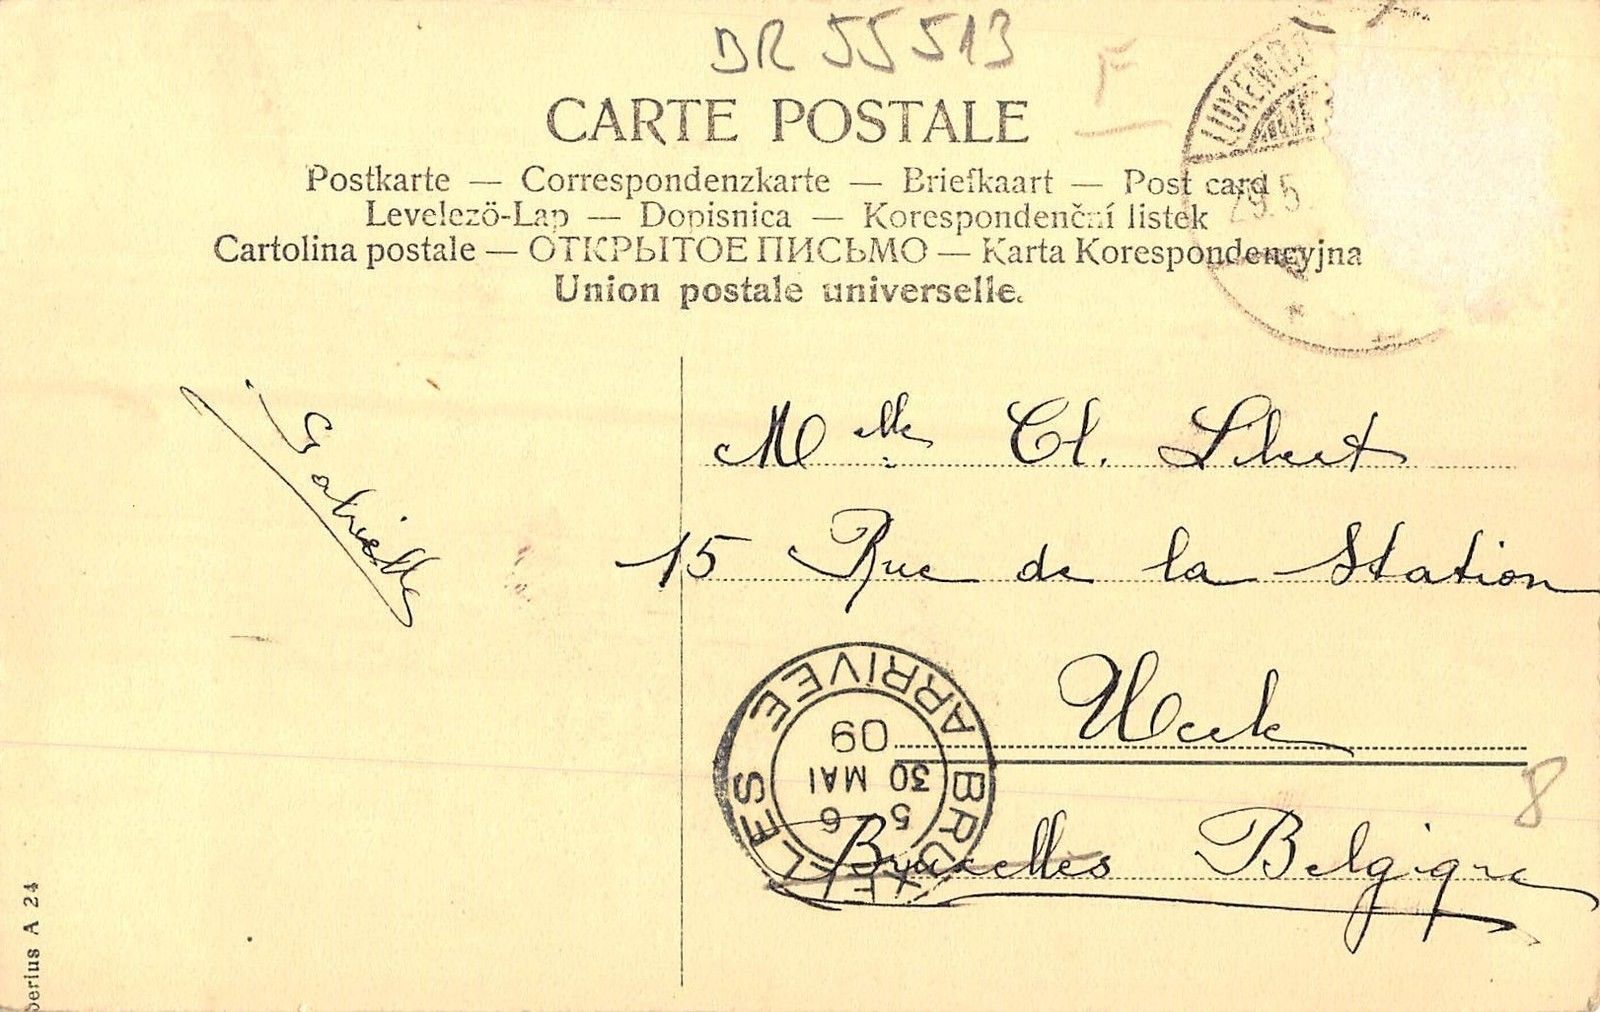 BR 55 513
F
LUXEMBO
29.5
CARTE POSTALE
Postkarte — Correspondenzkarte — Briefkaart — Post card
Levelező-Lap — Dopisnica — Korespondenční listek
Cartolina postale — ОТКРЫТОЕ ПИСЬМО — Karta Korespondencyjna
Union postale universelle.
Gabrielle
Mlle Cl. Libert
15 Rue de la Station
Uccle
8
Bruxelles Belgique
BRUXELLES ARRIVEE
5 6
30 MAI
09
berius A 24